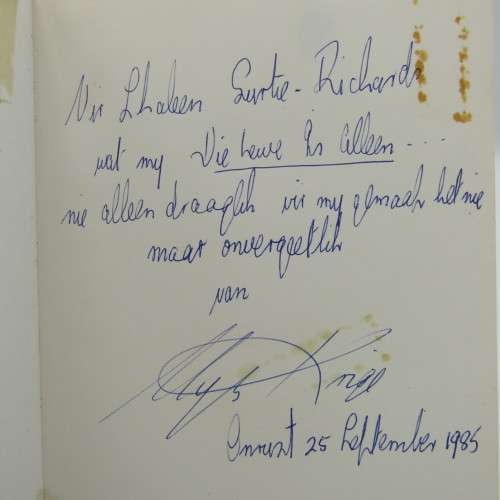 Vir Shaleen Surtie-Richards
wat my Die Leeue Is Alleen ....
nie alleen draaglik vir my gemaak het nie
maar onvergeetlik
van
Uys Krige
Onrust 25 September 1985